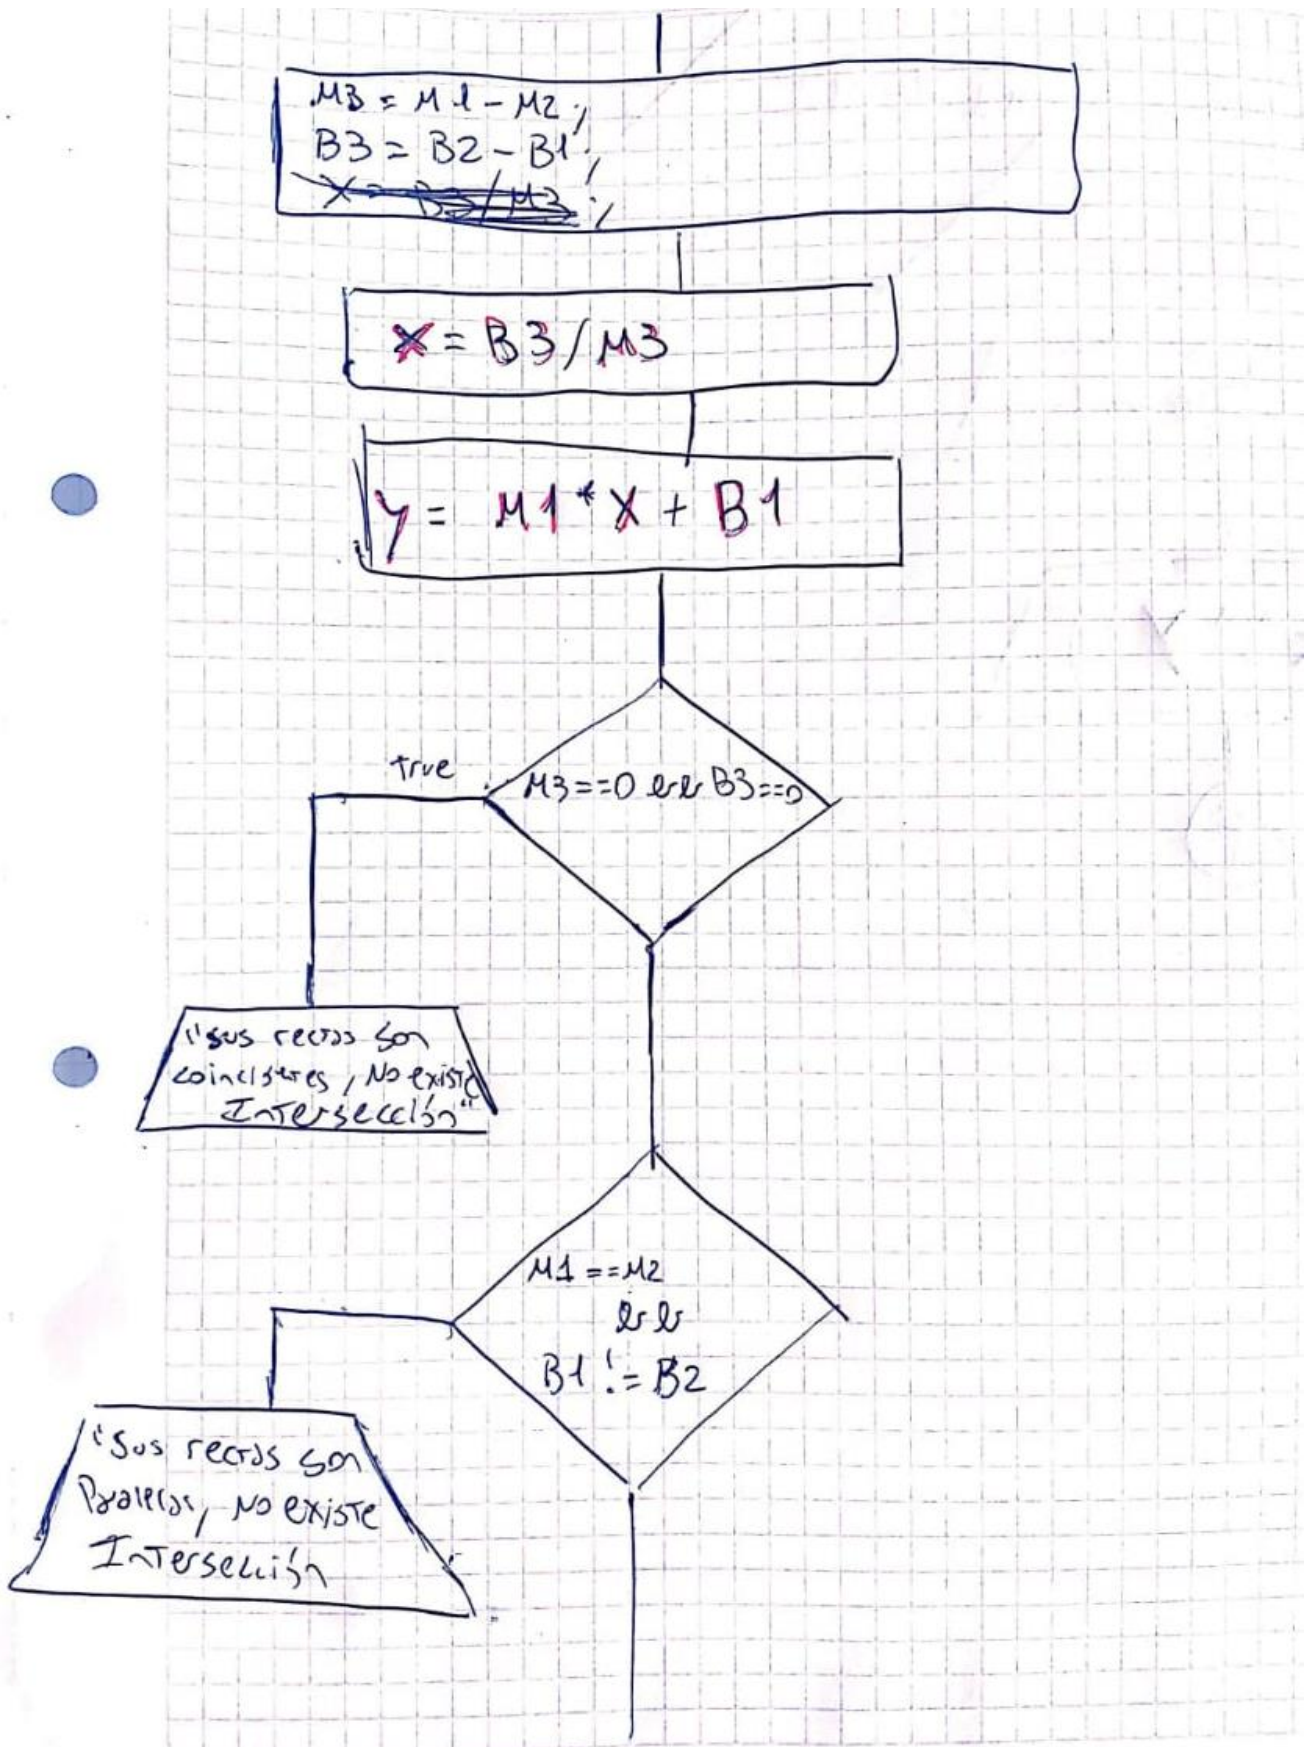 M3 = M1 - M2;
B3 = B2 - B1;
X = B3/M3;
X = B3/M3
y = M1 * X + B1
true
M3==0 && B3==0
"sus rectas son
coincidentes, No existe
Intersección"
M1 ==M2
&&
B1 != B2
"Sus rectas son
Paralelas, No existe
Intersección